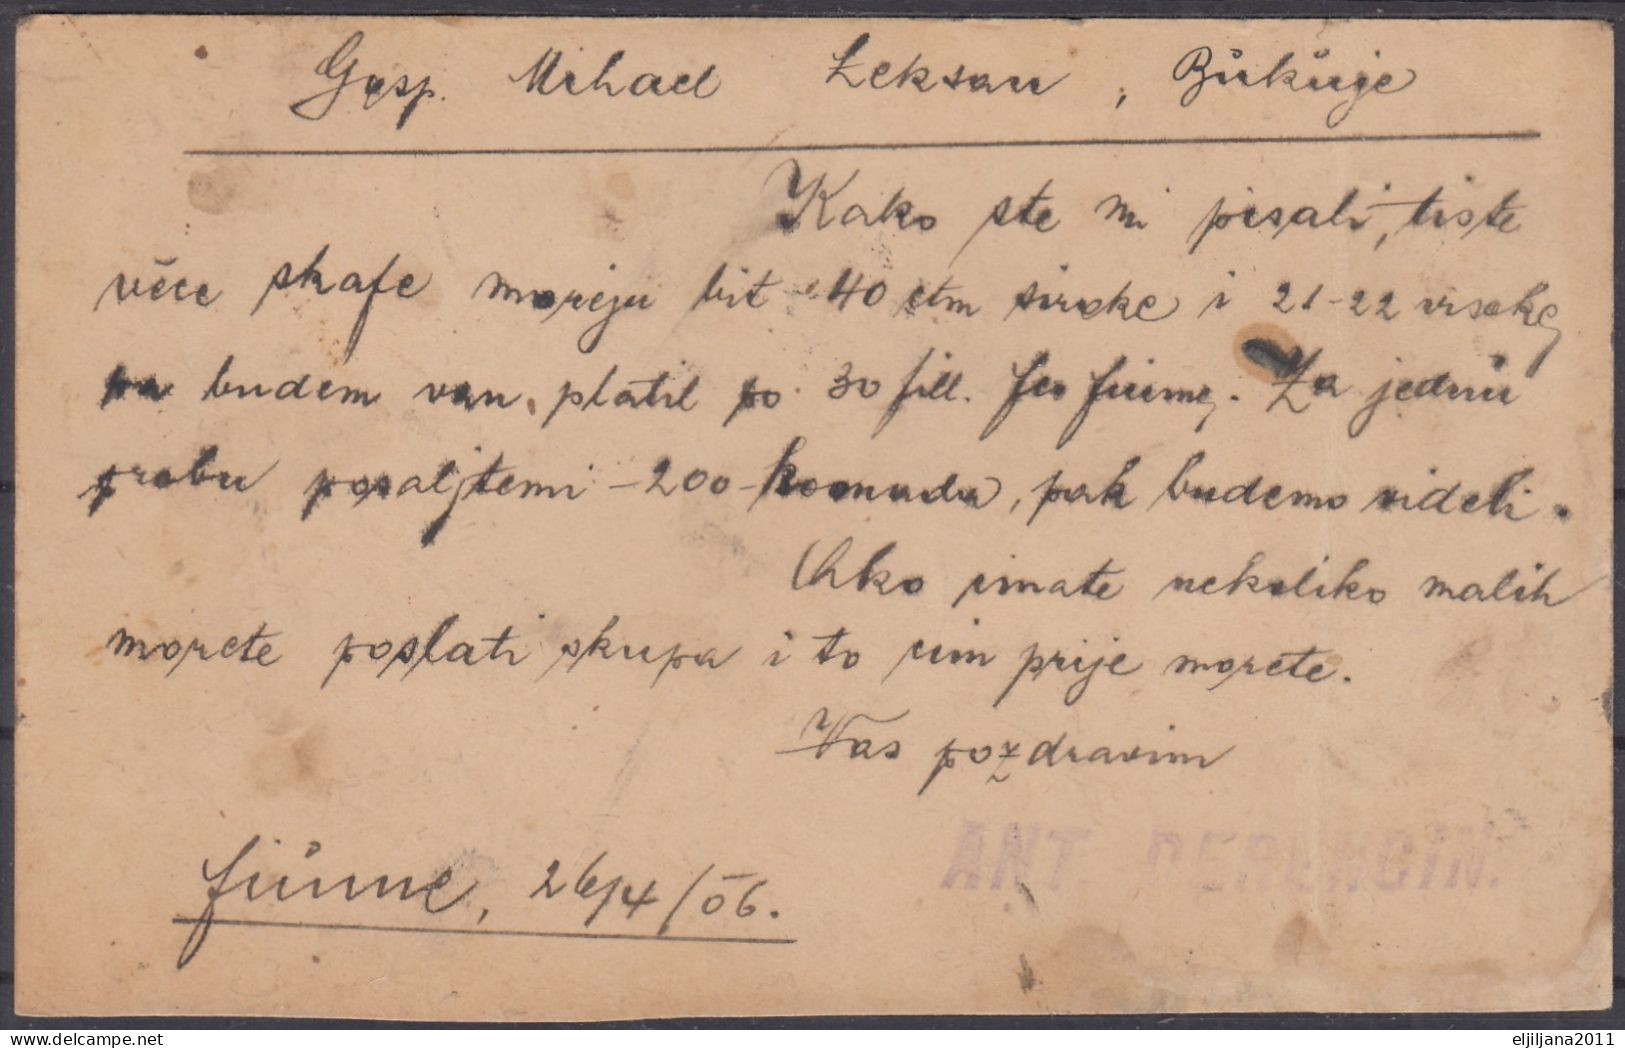 Gosp. Mihael Leksan, Bŭkŭje
Kako ste mi pisali, tiste
veće skafe moreju bit 40 ctm siroke i 21-22 visoke,
pa budem vam platil po 30 fill. fco fiume. Za jednu
probu posaljtemi -200- komada, pak budemo videli.
Ako imate nekoliko malih
morete poslati skupa i to cim prije morete.
Vas pozdravim
ANT.
fiŭme, 26/4/06.
eljiljana2011